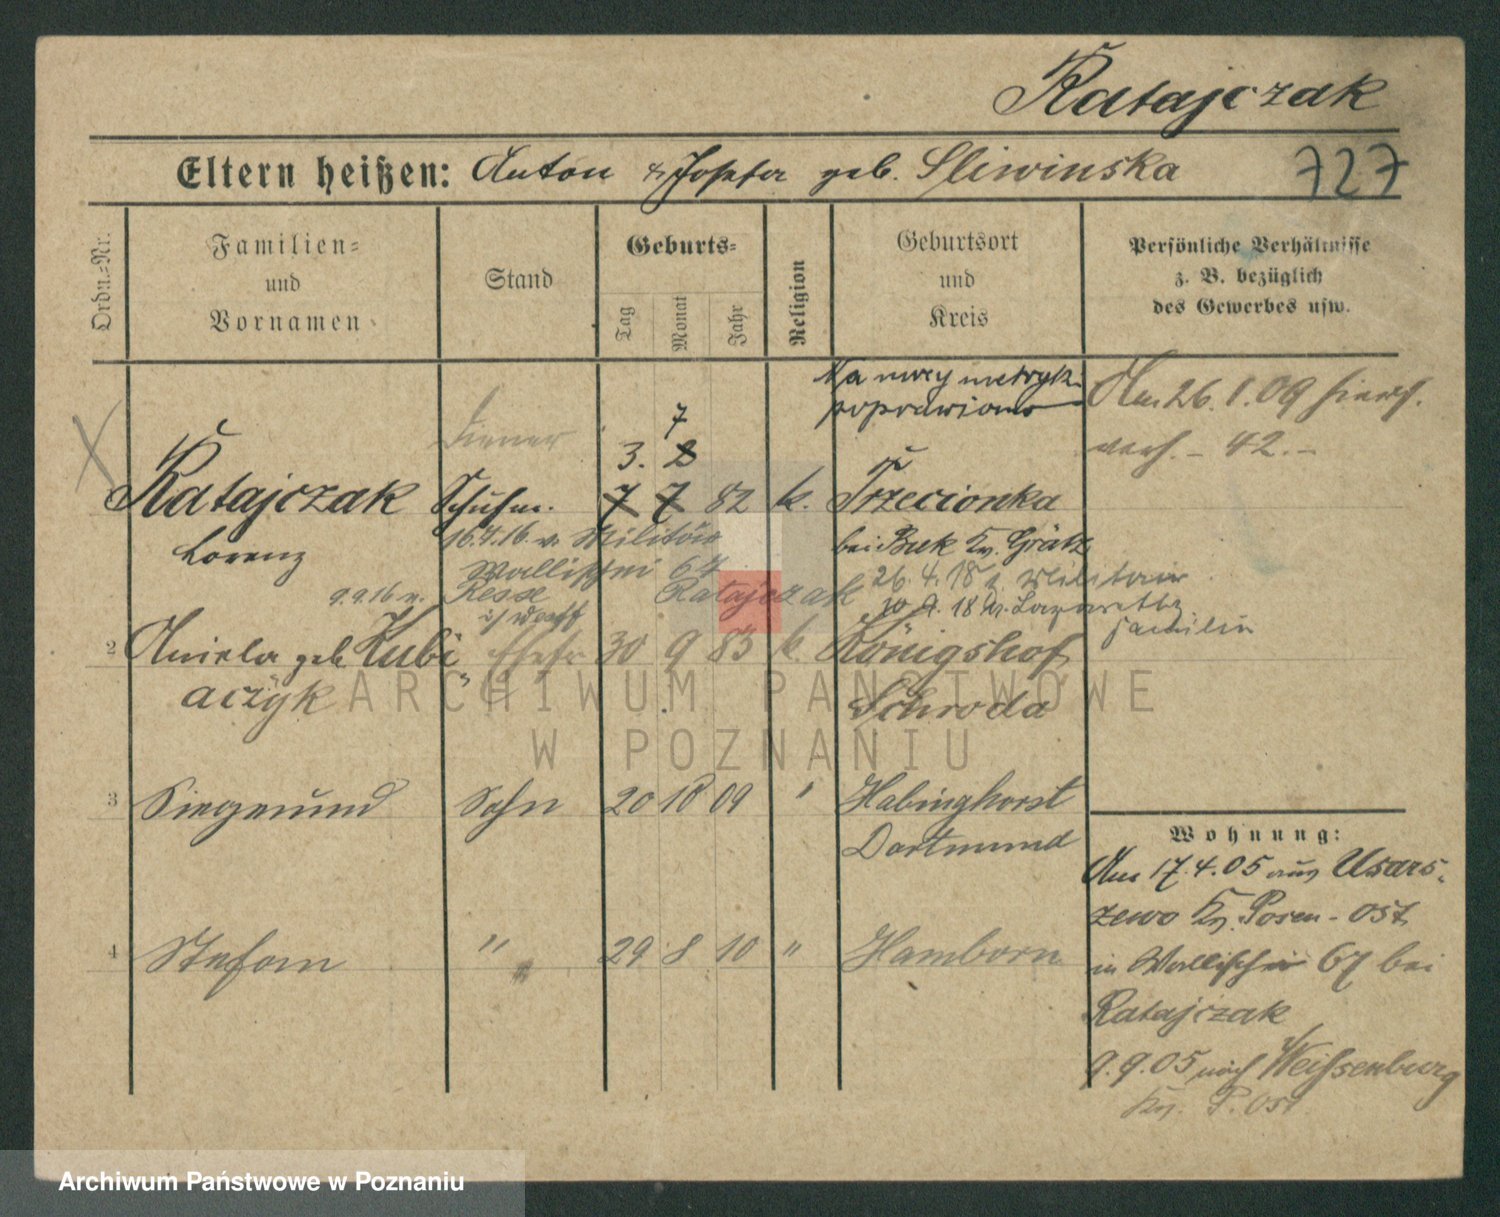 Ratajczak
Eltern heißen: Anton & Josefa geb. Sliwinska 727
Ordn.=Nr.
Familien=
und
Vornamen
Stand
Geburts=
Tag
Monat
Jahr
Religion
Geburtsort
und
Kreis
Persönliche Verhältnisse
z. B. bezüglich
des Gewerbes usw.
Na mocy metryki
poprawiono
Am 26.1.09 hier
verh. - 42.-
Diener
7
3. 8
Ratajczak Schuhm. 7 7 82 k. Trzecionka
Lorenz
bei Buk Kr. Grätz
16.4.16 v. Militär
Wallischei 67
26.4.18 z. Militär
9.9.16 n. Ratajczak
30.9.18 Lazarett
Familie
2 Aniela geb. Kubi Ehefr 30 9 83 k. Königshof
aczyk
Schroda
3 Siegmund Sohn 20 10 09 " Habinghorst
Dortmund
4 Stefan " 29 8 10 " Hamborn
Wohnung:
Am 17.4.05 aus Usars-
zewo Kr. Posen-Ost
in Wallischei 67 bei
Ratajczak
9.9.05 nach Weissenburg
Kr. P. Ost
ARCHIWUM PAŃSTWOWE
W POZNANIU
Archiwum Państwowe w Poznaniu